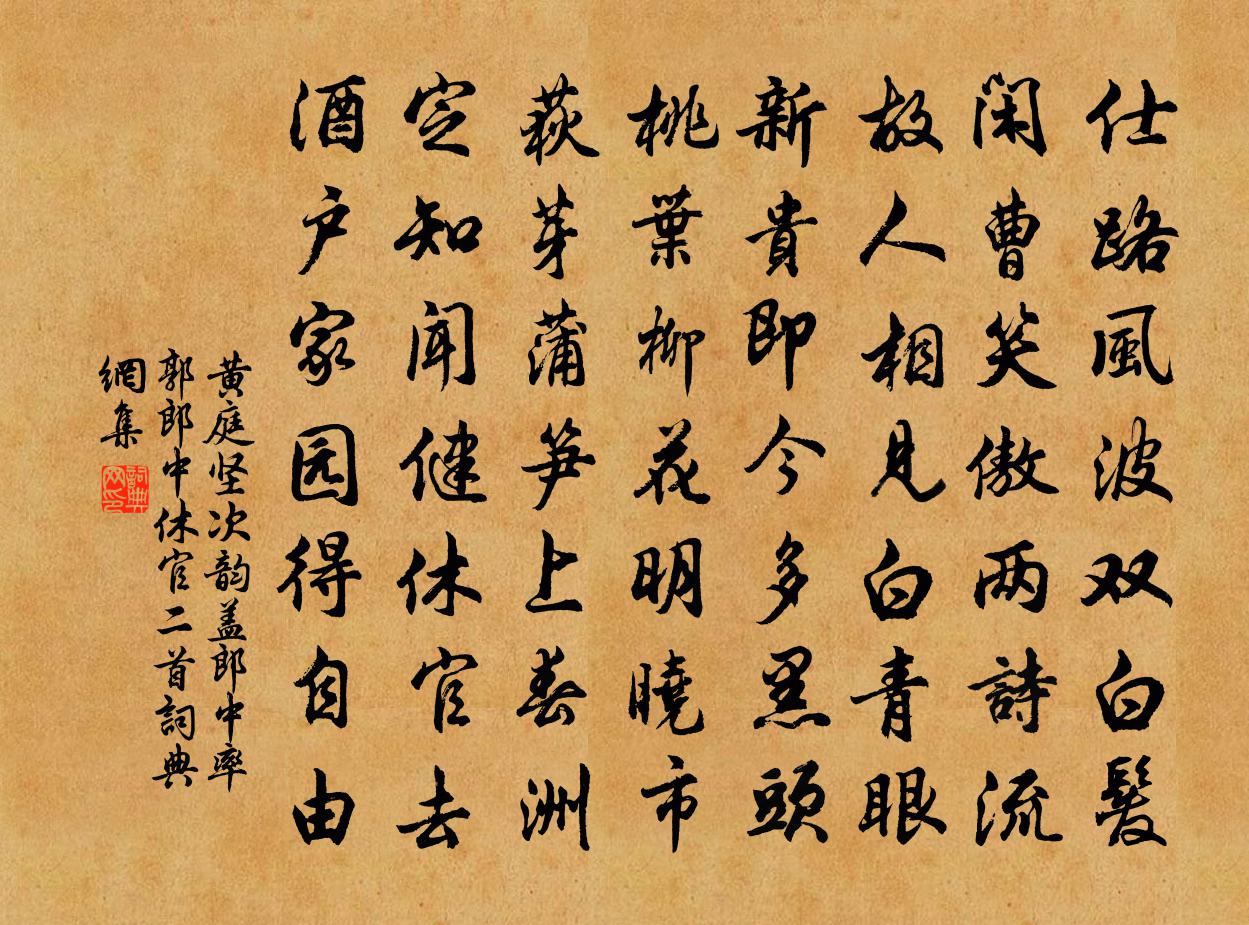 仕路風波双白髮
閑曹笑傲两詩流
故人相見白青眼
新貴即今多黑頭
桃葉柳花明曉市
荻芽蒲笋上春洲
定知闻健休官去
酒户家园得自由
黄庭坚次韵盖郎中率
郭郎中休官二首詞典
網集
詞典
网印